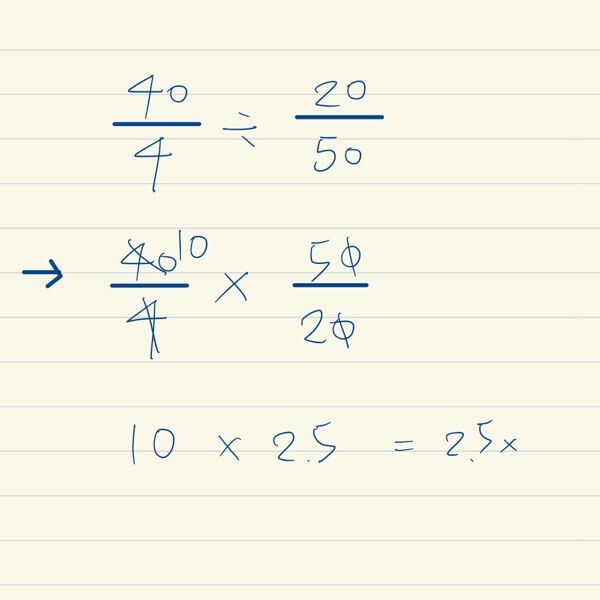 40/4 ÷ 20/50
→ 40 10/4 × 50/20
10 × 2.5 = 2.5x